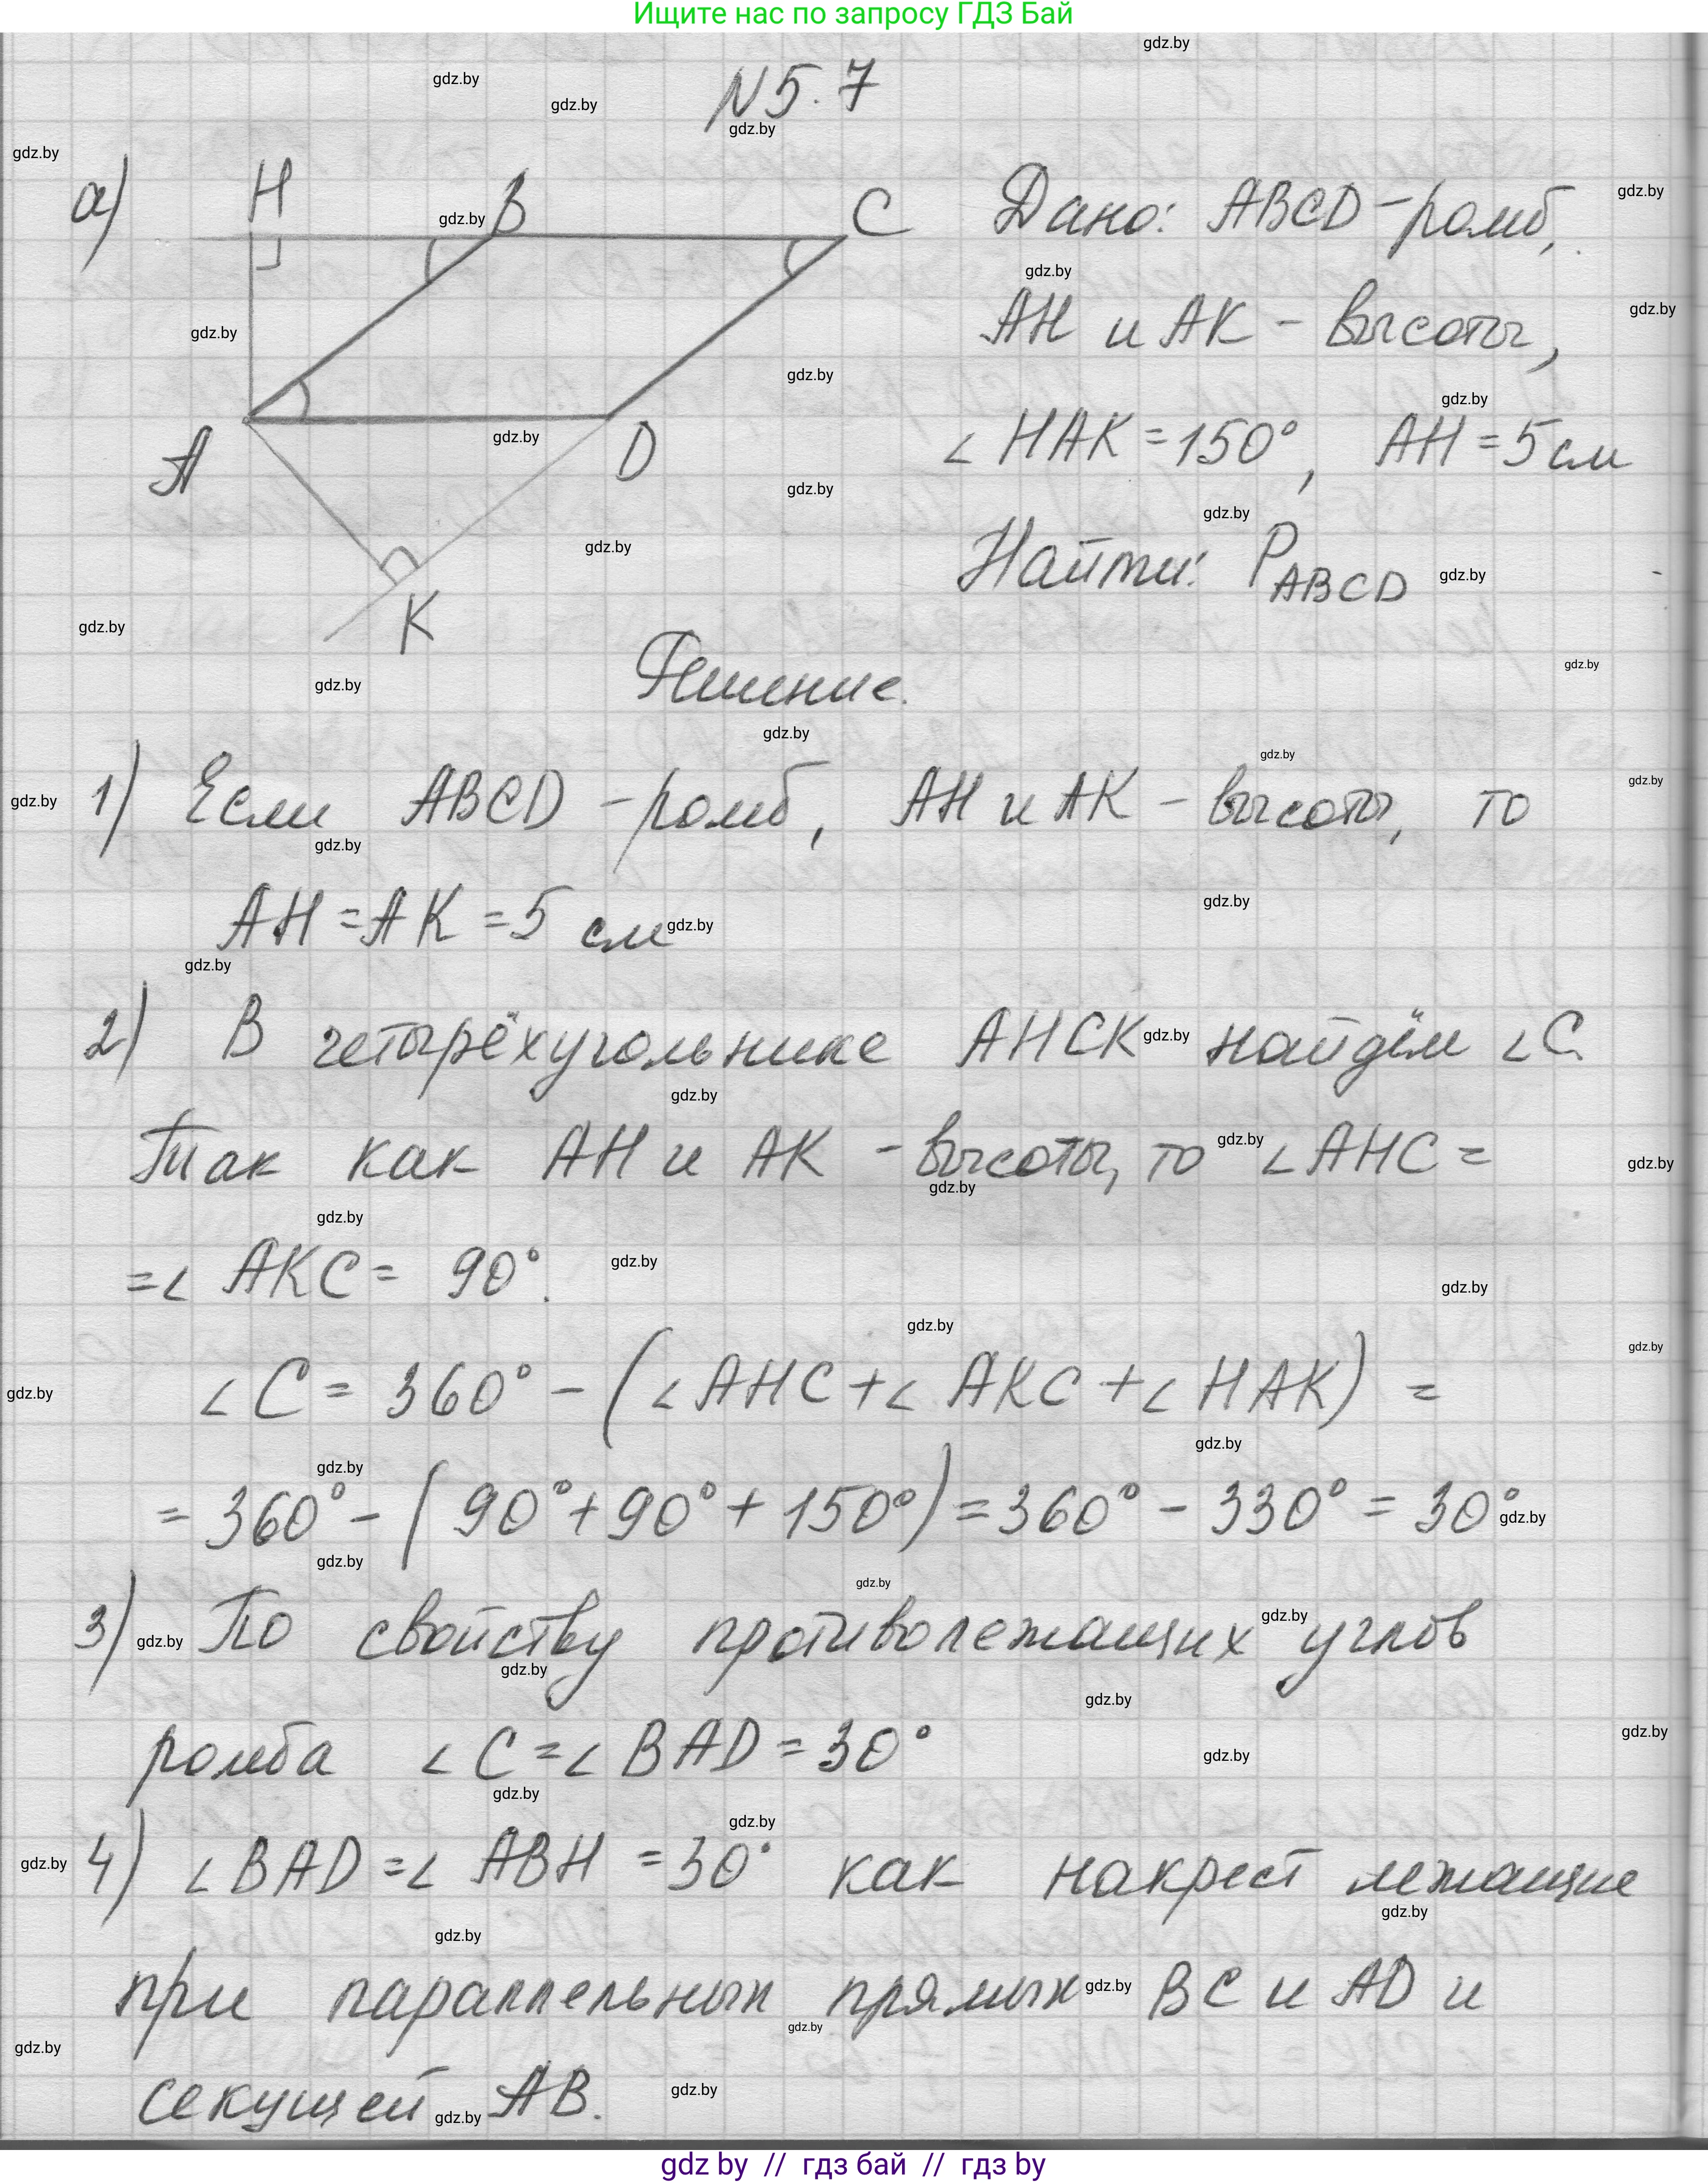 Ищите нас по запросу ГДЗ Бай
N5.7
а)
H B C
A D
K
Дано: ABCD - ромб,
AH и AK - высоты,
∠ HAK = 150°, AH = 5 см
Найти: P ABCD
Решение.
1) Если ABCD - ромб, AH и AK - высоты, то
AH = AK = 5 см
2) В четырёхугольнике AHCK найдём ∠C.
Так как AH и AK - высоты, то ∠AHC =
= ∠ AKC = 90°.
∠C = 360° - (∠AHC + ∠ AKC + ∠ HAK) =
= 360° - (90° + 90° + 150°) = 360° - 330° = 30°
3) По свойству противолежащих углов
ромба ∠C = ∠BAD = 30°
4) ∠BAD = ∠ ABH = 30° как накрест лежащие
при параллельных прямых BC и AD и
секущей AB.
gdz by // гдз бай // гдз by